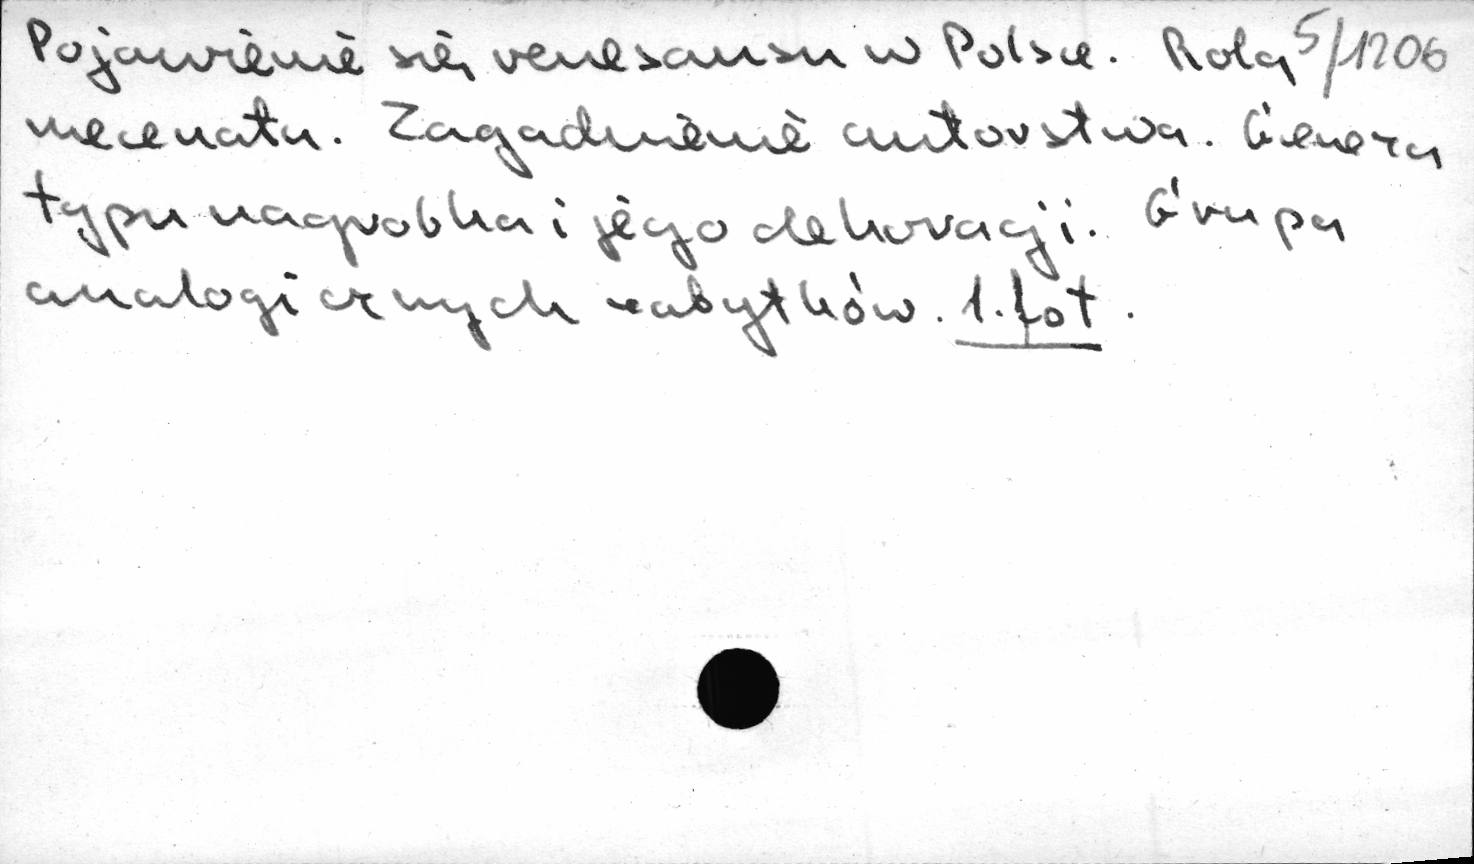 Pojawienie się renesansu w Polsce. Rola 5/1206
mecenatu. Zagadnienie autorstwa. Geneza
typu nagrobka i jego dekoracji. Grupa
analogicznych zabytków. 1. fot.